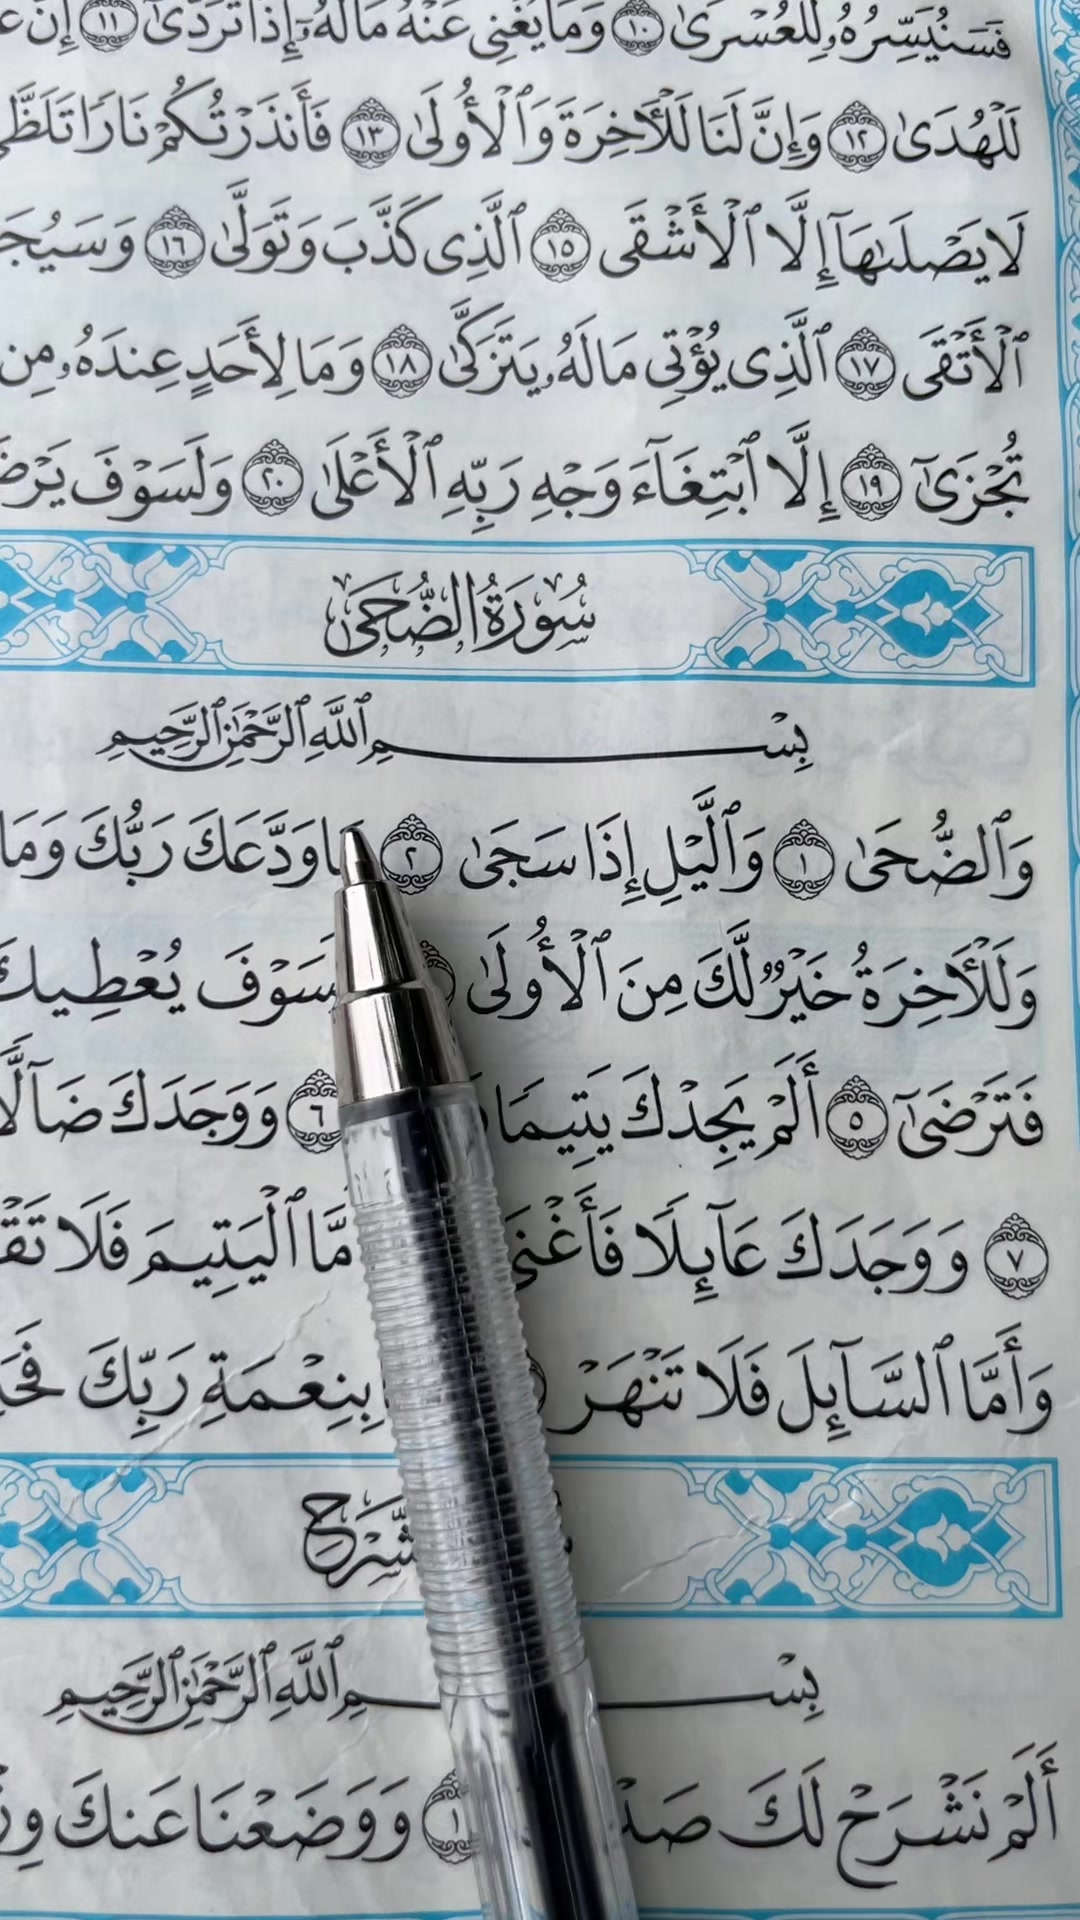 فَسَنُيَسِّرُهُۥ لِلْعُسْرَىٰ ١٠ وَمَا يُغْنِى عَنْهُ مَالُهُۥٓ إِذَا تَرَدَّىٰٓ ١١ إِنَّ
لَلْهُدَىٰ ١٢ وَإِنَّ لَنَا لَلْـَٔاخِرَةَ وَٱلْأُولَىٰ ١٣ فَأَنذَرْتُكُمْ نَارًا تَلَظَّىٰ
لَا يَصْلَىٰهَآ إِلَّا ٱلْأَشْقَى ١٥ ٱلَّذِى كَذَّبَ وَتَوَلَّىٰ ١٦
ٱلْأَتْقَى ١٧ ٱلَّذِى يُؤْتِى مَالَهُۥ يَتَزَكَّىٰ ١٨ وَمَا لِأَحَدٍ عِندَهُۥ مِن
تُجْزَىٰٓ ١٩ إِلَّا ٱبْتِغَآءَ وَجْهِ رَبِّهِ ٱلْأَعْلَىٰ ٢٠ وَلَسَوْفَ
سُورَةُ الضُّحَىٰ
بِسْمِ ٱللَّهِ ٱلرَّحْمَٰنِ ٱلرَّحِيمِ
وَٱلضُّحَىٰ ١ وَٱلَّيْلِ إِذَا سَجَىٰ ٢ مَا وَدَّعَكَ رَبُّكَ وَمَا
وَلَلْـَٔاخِرَةُ خَيْرٌ لَّكَ مِنَ ٱلْأُولَىٰ سَوْفَ يُعْطِيكَ
فَتَرْضَىٰٓ ٥ أَلَمْ يَجِدْكَ يَتِيمًا ٦ وَوَجَدَكَ ضَآلًّا
٧ وَوَجَدَكَ عَآئِلًا فَأَغْنَىٰ ٱلْيَتِيمَ فَلَا
وَأَمَّا ٱلسَّآئِلَ فَلَا تَنْهَرْ بِنِعْمَةِ رَبِّكَ
الشَّرْحِ
بِسْمِ ٱللَّهِ ٱلرَّحْمَٰنِ ٱلرَّحِيمِ
أَلَمْ نَشْرَحْ لَكَ ١ وَوَضَعْنَا عَنكَ